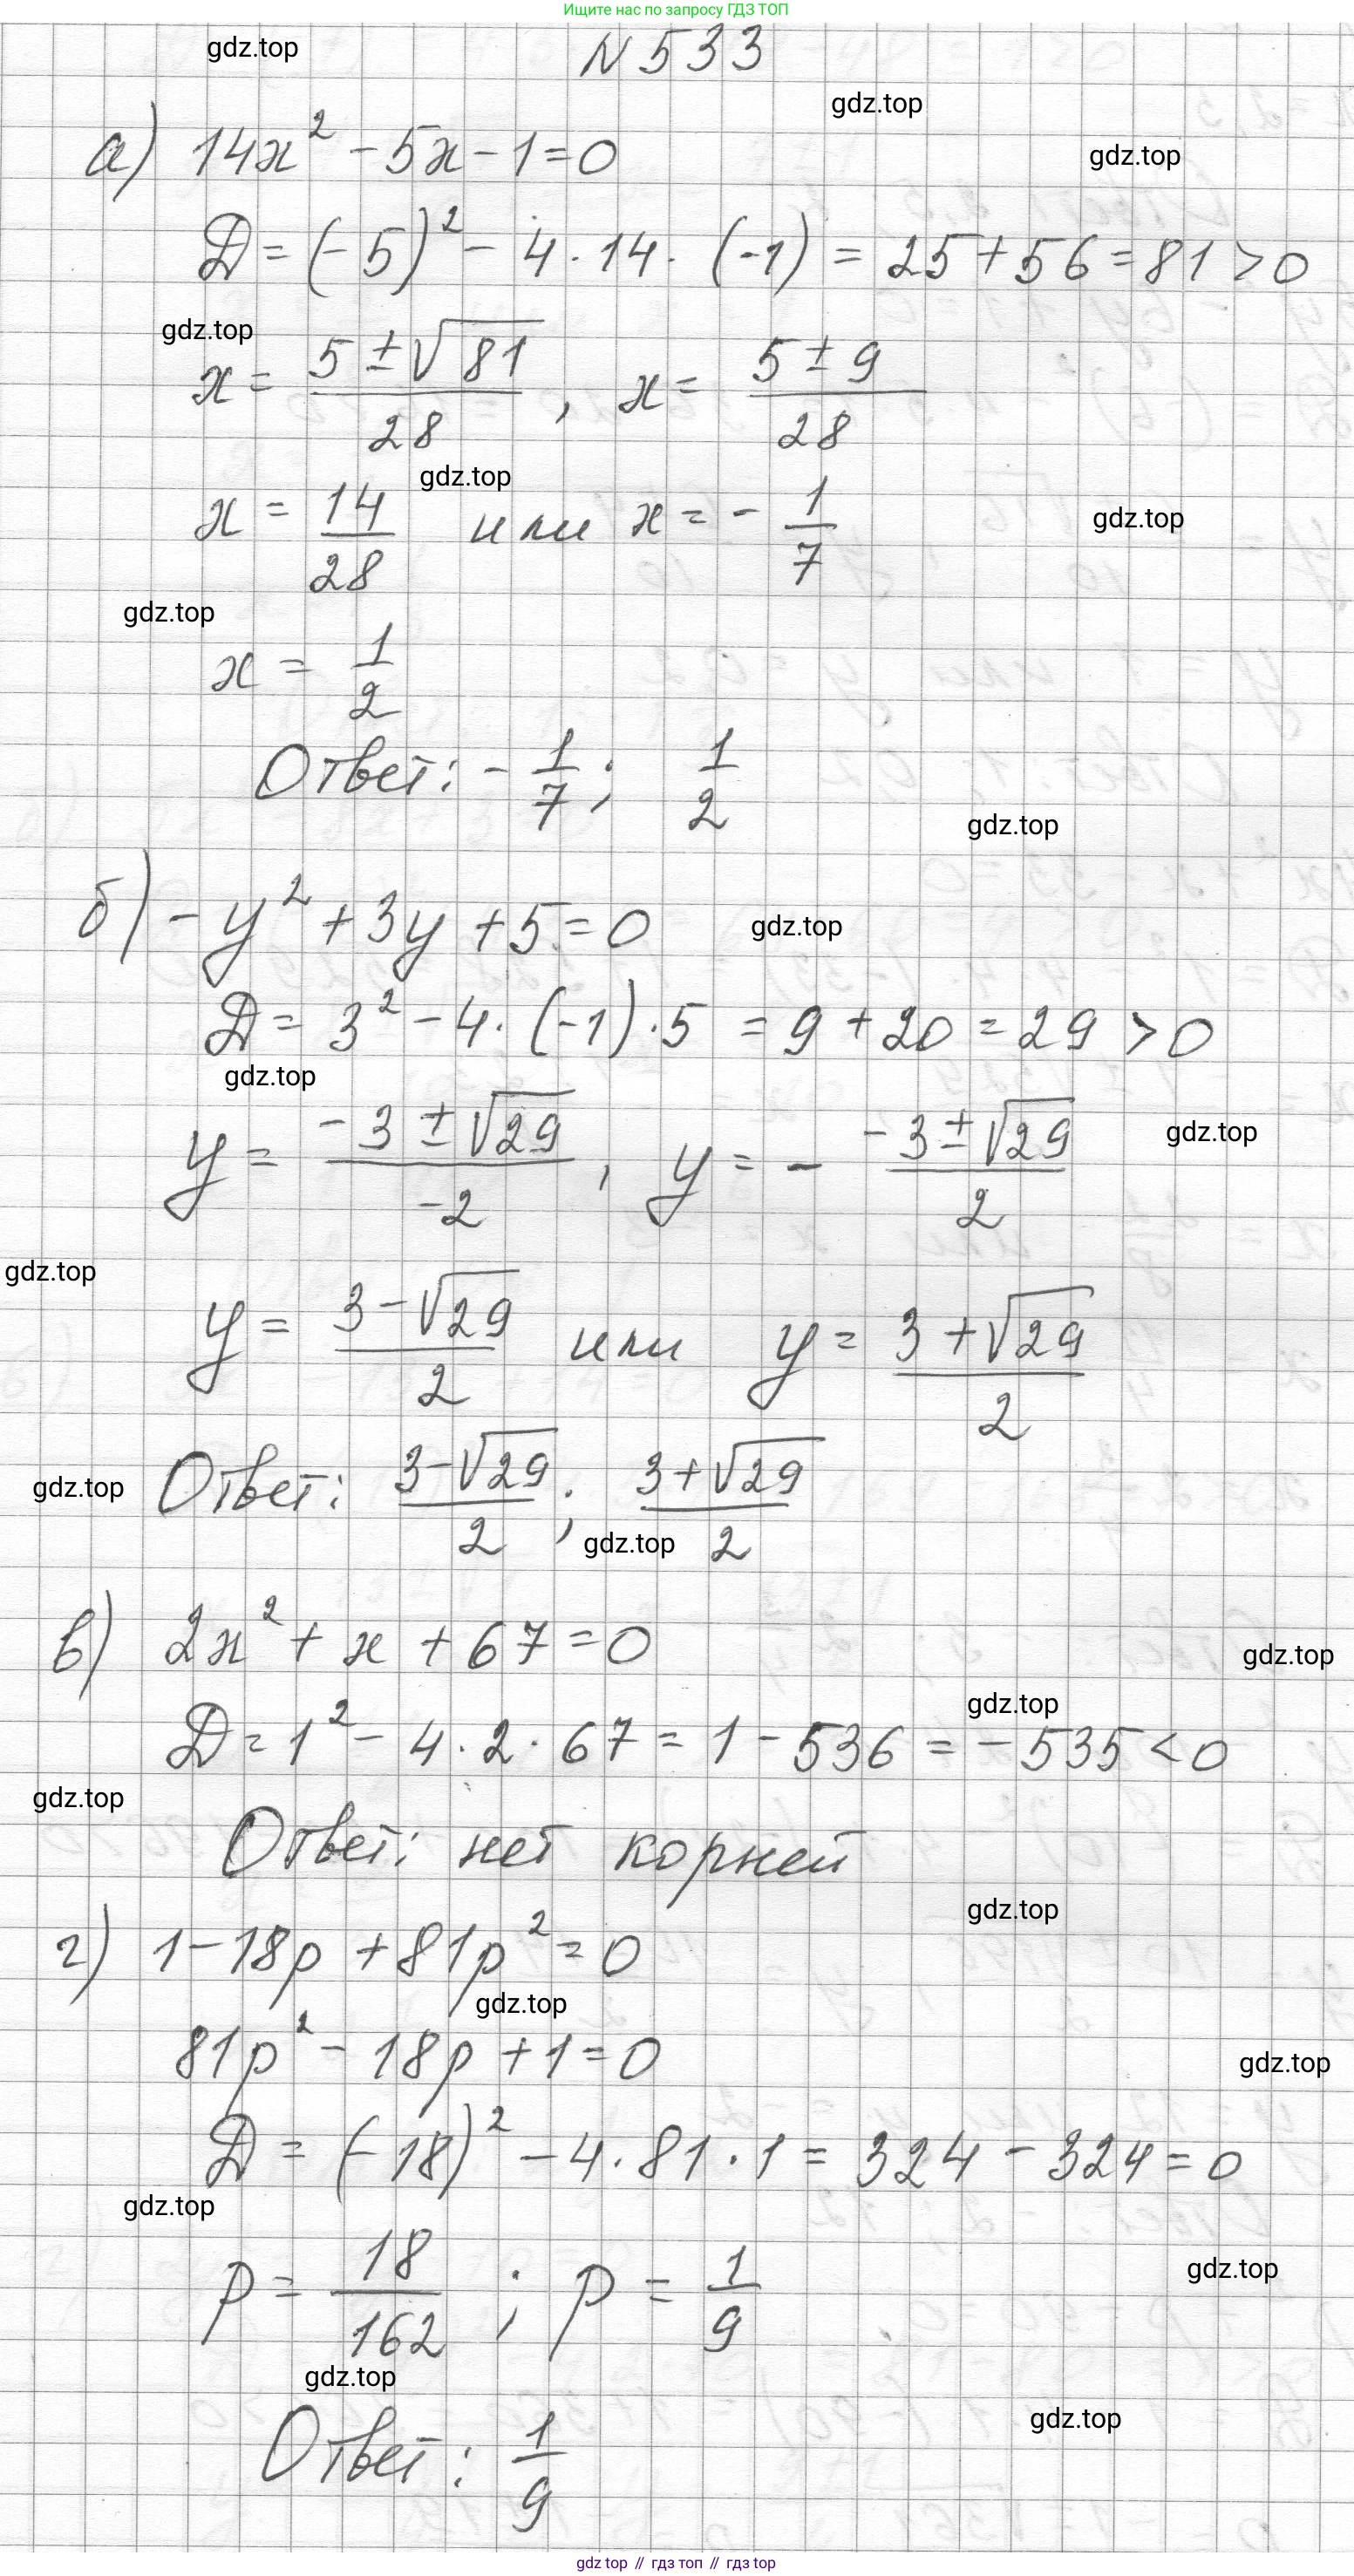 Ищите нас по запросу ГДЗ ТОП
gdz.top
N 533
gdz.top
а) 14x² - 5x - 1 = 0
gdz.top
D = (-5)² - 4 · 14 · (-1) = 25 + 56 = 81 > 0
gdz.top
x = (5 ± √81)/28 , x = (5 ± 9)/28
gdz.top
x = 14/28 или x = - 1/7
gdz.top
gdz.top
x = 1/2
Ответ: - 1/7 ; 1/2
gdz.top
б) - y² + 3y + 5 = 0
gdz.top
D = 3² - 4 · (-1) · 5 = 9 + 20 = 29 > 0
gdz.top
y = (-3 ± √29)/-2 , y = - (-3 ± √29)/2
gdz.top
gdz.top
y = (3 - √29)/2 или y = (3 + √29)/2
Ответ: (3 - √29)/2 ; (3 + √29)/2
gdz.top
gdz.top
в) 2x² + x + 67 = 0
gdz.top
gdz.top
D = 1² - 4 · 2 · 67 = 1 - 536 = - 535 < 0
gdz.top
Ответ: нет корней
gdz.top
г) 1 - 18p + 81p² = 0
gdz.top
81p² - 18p + 1 = 0
gdz.top
D = (-18)² - 4 · 81 · 1 = 324 - 324 = 0
gdz.top
p = 18/162 ; p = 1/9
gdz.top
gdz.top
gdz.top
Ответ: 1/9
gdz top // гдз топ // гдз top